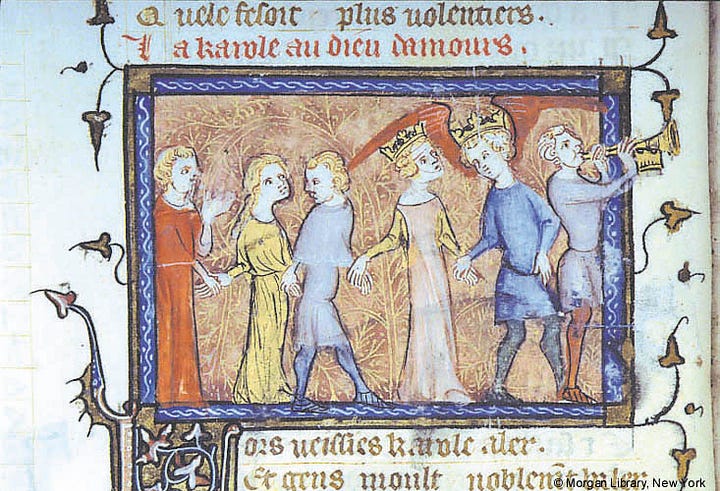 Quele fesoit plus uolentiers.
La karole au dieu damours.
Lors ueissies karole aler.
Et gens moult noblem̃t baler
© Morgan Library, New York